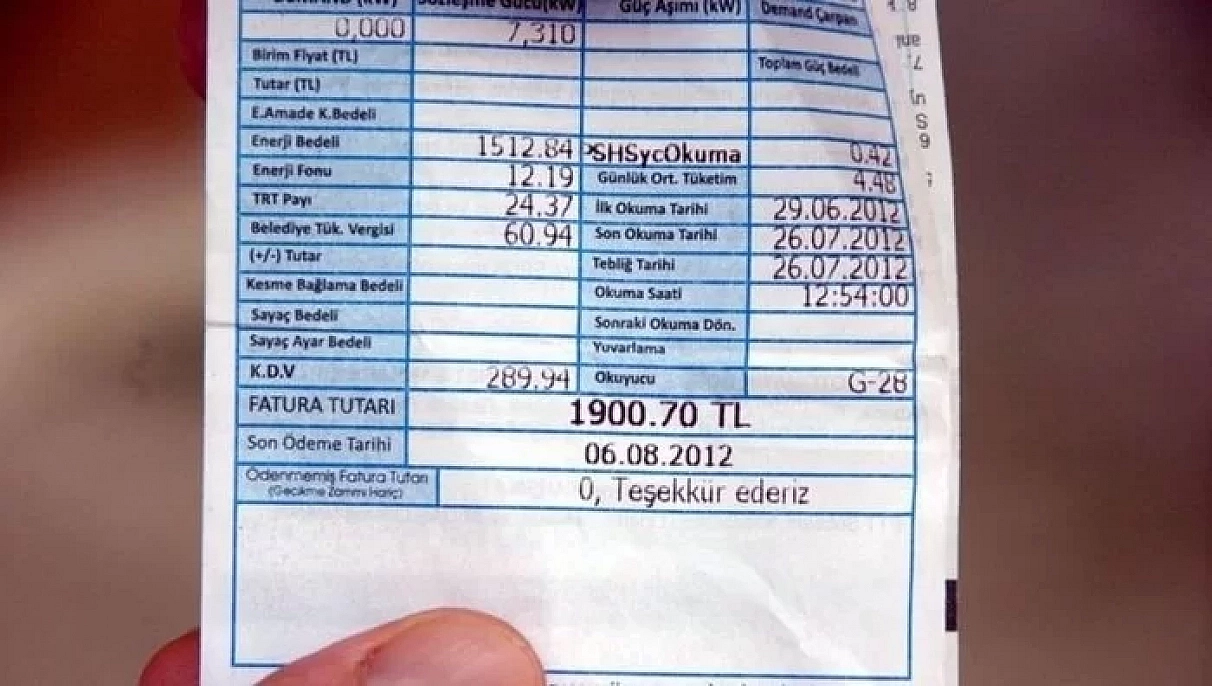 DEMAND (KW) Sözleşme Gücü(KW) Güç Aşımı (kW) Demand Çarpan
0,000 7,310
Birim Fiyat (TL) Toplam Güç Bedeli
Tutar (TL)
E.Amade K.Bedeli
Enerji Bedeli 1512.84 *SHSycOkuma 0.42
Enerji Fonu 12.19 Günlük Ort. Tüketim 4.48
TRT Payı 24.37 İlk Okuma Tarihi 29.06.2012
Belediye Tük. Vergisi 60.94 Son Okuma Tarihi 26.07.2012
(+/-) Tutar Tebliğ Tarihi 26.07.2012
Kesme Bağlama Bedeli Okuma Saati 12:54:00
Sayaç Bedeli Sonraki Okuma Dön.
Sayaç Ayar Bedeli Yuvarlama
K.D.V 289.94 Okuyucu G-28
FATURA TUTARI 1900.70 TL
Son Ödeme Tarihi 06.08.2012
Ödenmemiş Fatura Tutarı 0, Teşekkür ederiz
(Gecikme Zammı Hariç)